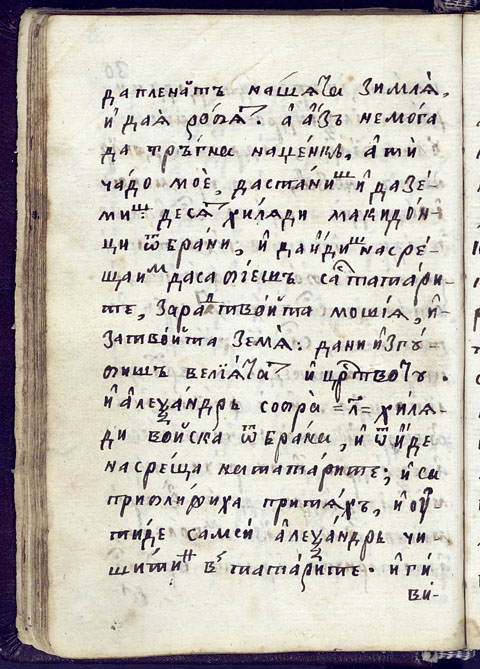 да пленѧ́тъ на́шѧта зимлѧ̀,
и҆ даѧ̀ ро́бѧт. а҆ а҆́зъ немо́га
да тръ́гна наще́нкь, а҆ти
ча́до моѐ, да ста́ниш и҆ да зе́-
миш десѧт хи́лѧди макидо́н-
щи ѿбра́ни, и҆ да и҆́диш насре́-
ща им да са бїе́шъ са тата́ри-
те, зара́ тво́йта мошїѧ, и҆
за тво́йта землѧ̀. да ни и҆згу́-
биш
и҆ а҆леѯа́ндрь собра̀ =л҃= хи́лѧ-
ди во́йска ѿбра́на, и҆ ѿи҆́де
насре́ща на тата́рите; и҆ са
приближиха при тѧ́хъ, и҆ оу-
ти́де самси́ а҆леѯа́ндрь чи
в татарите. и҆ ги
ви-